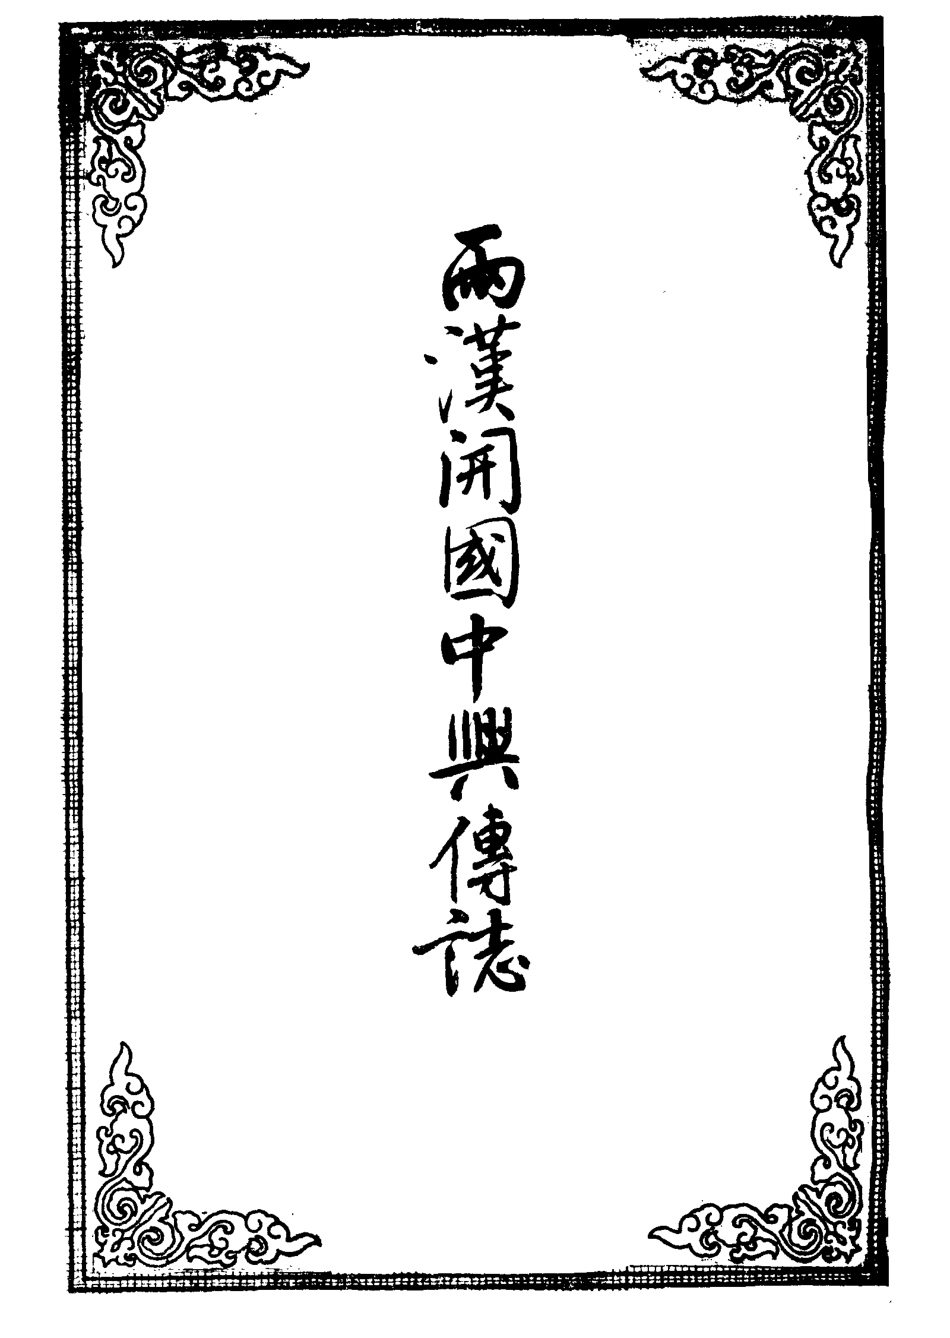 兩漢開國中興傳誌